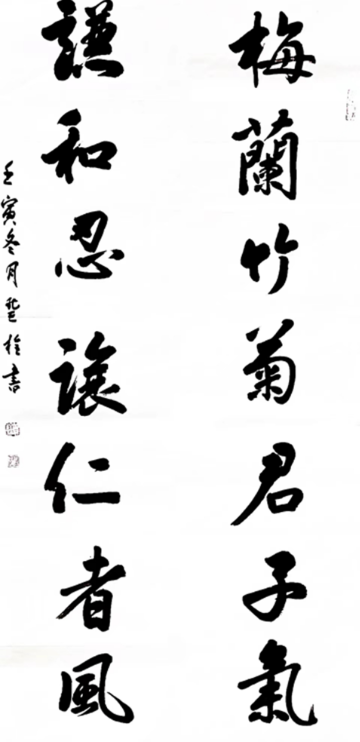 梅蘭竹菊君子氣
謙和忍讓仁者風
壬寅冬月書